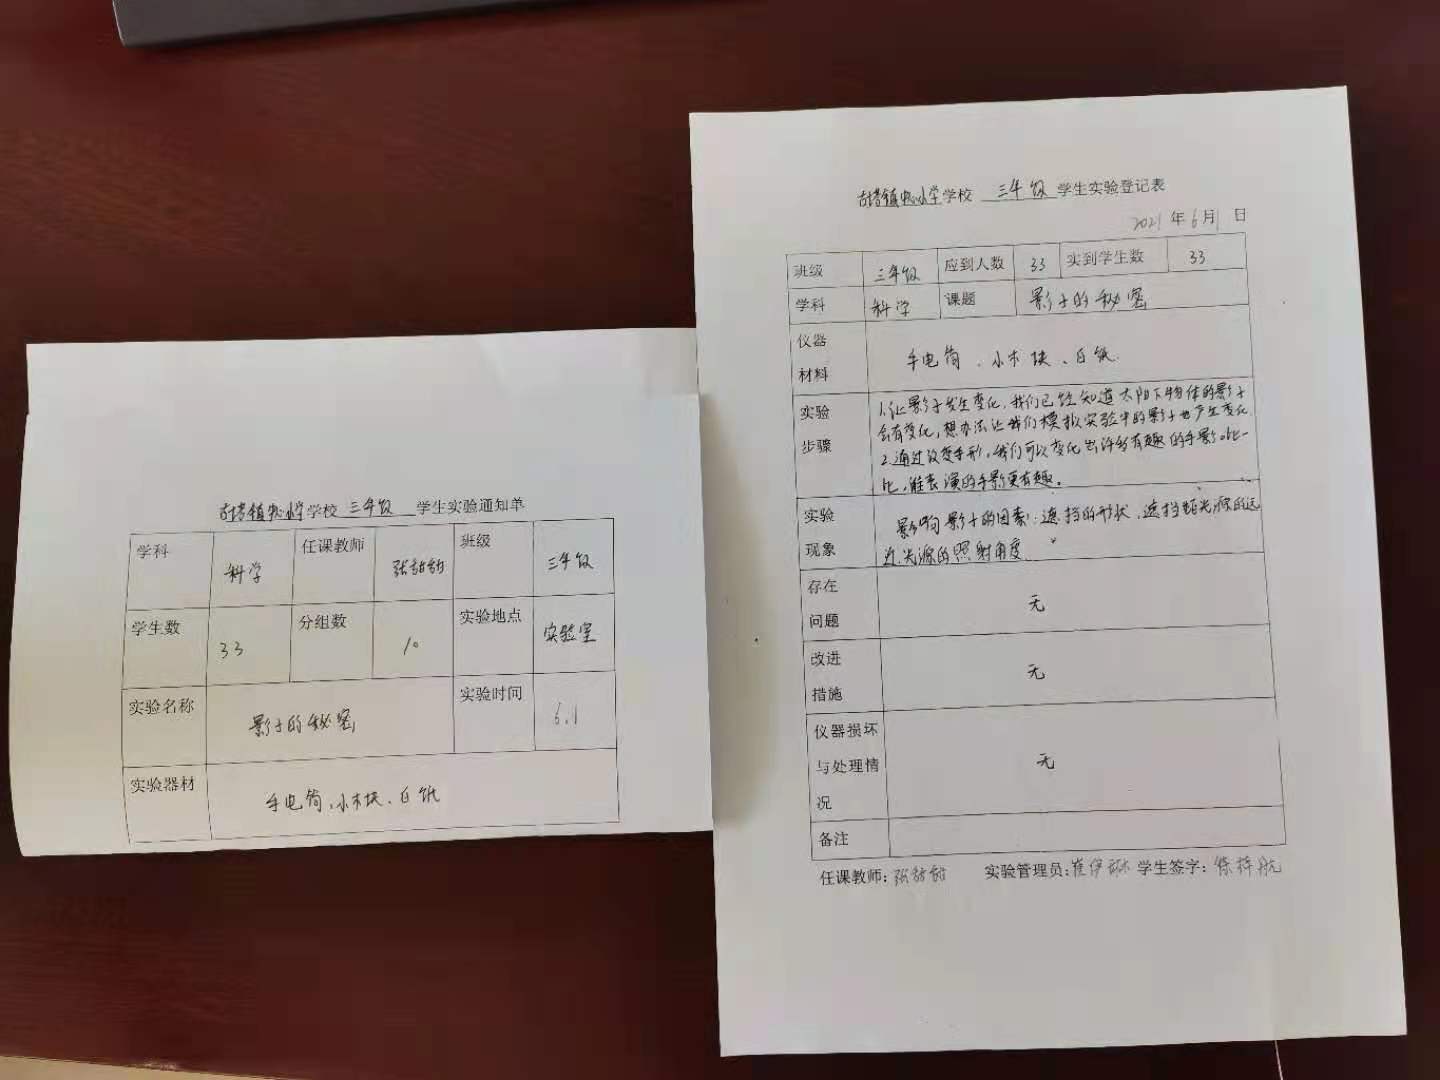 镇中心小学学校 三年级 学生实验通知单
学科 科学 任课教师 张甜甜 班级 三年级
学生数 33 分组数 10 实验地点 实验室
实验名称 影子的秘密 实验时间 6.1
实验器材 手电筒、小木块、白纸
镇中心小学学校 三年级 学生实验登记表
2021年6月1日
班级 三年级 应到人数 33 实到学生数 33
学科 科学 课题 影子的秘密
仪器
材料
手电筒、小木块、白纸.
实验
步骤
1.让影子发生变化,我们已经知道太阳下物体的影子
会有变化,想办法让我们模拟实验中的影子也产生变化.
2.通过改变手形,我们可以变化出许多有趣的手影,比一
比,谁表演的手影更有趣。
实验
现象
影响影子的因素:遮挡的形状、遮挡距光源的远
近.光源的照射角度
存在
问题
无
改进
措施
无
仪器损坏
与处理情
况
无
备注
任课教师:张甜甜 实验管理员:崔伊琳 学生签字:徐梓航